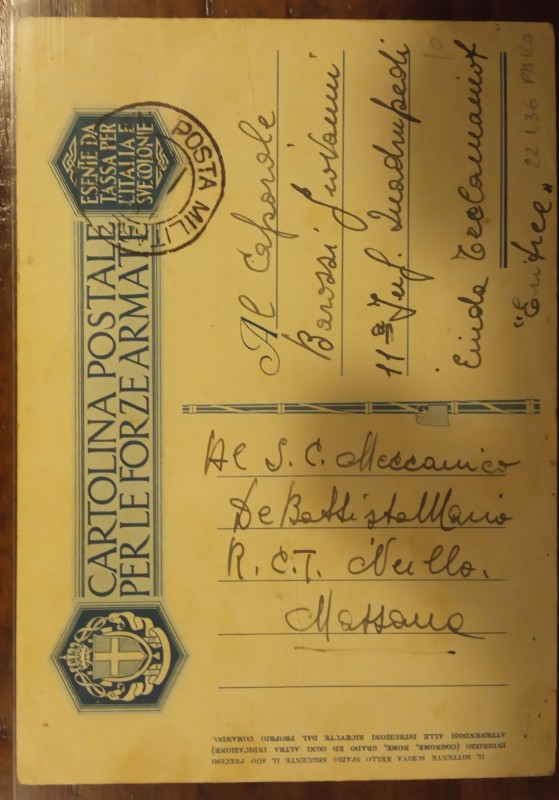 CARTOLINA POSTALE
PER LE FORZE ARMATE
ESENTE DA
TASSA PER
L'ITALIA E
SVE COLONIE
POSTA MILI
IL MITTENTE SCRIVA NELLO SPAZIO SEGUENTE IL SUO PRECISO
INDIRIZZO (COGNOME, NOME, GRADO ED OGNI ALTRA INDICAZIONE)
ATTENENDOSI ALLE ISTRUZIONI RICEVUTE DAL PROPRIO COMANDO.
Al S. C. Meccanico
De Battista Mario
R. C. T. Nullo.
Massaua
Al Caporale
Barossi Giovanni
11ª Inf. Quadrupedi
"Eritrea"
22 1.36